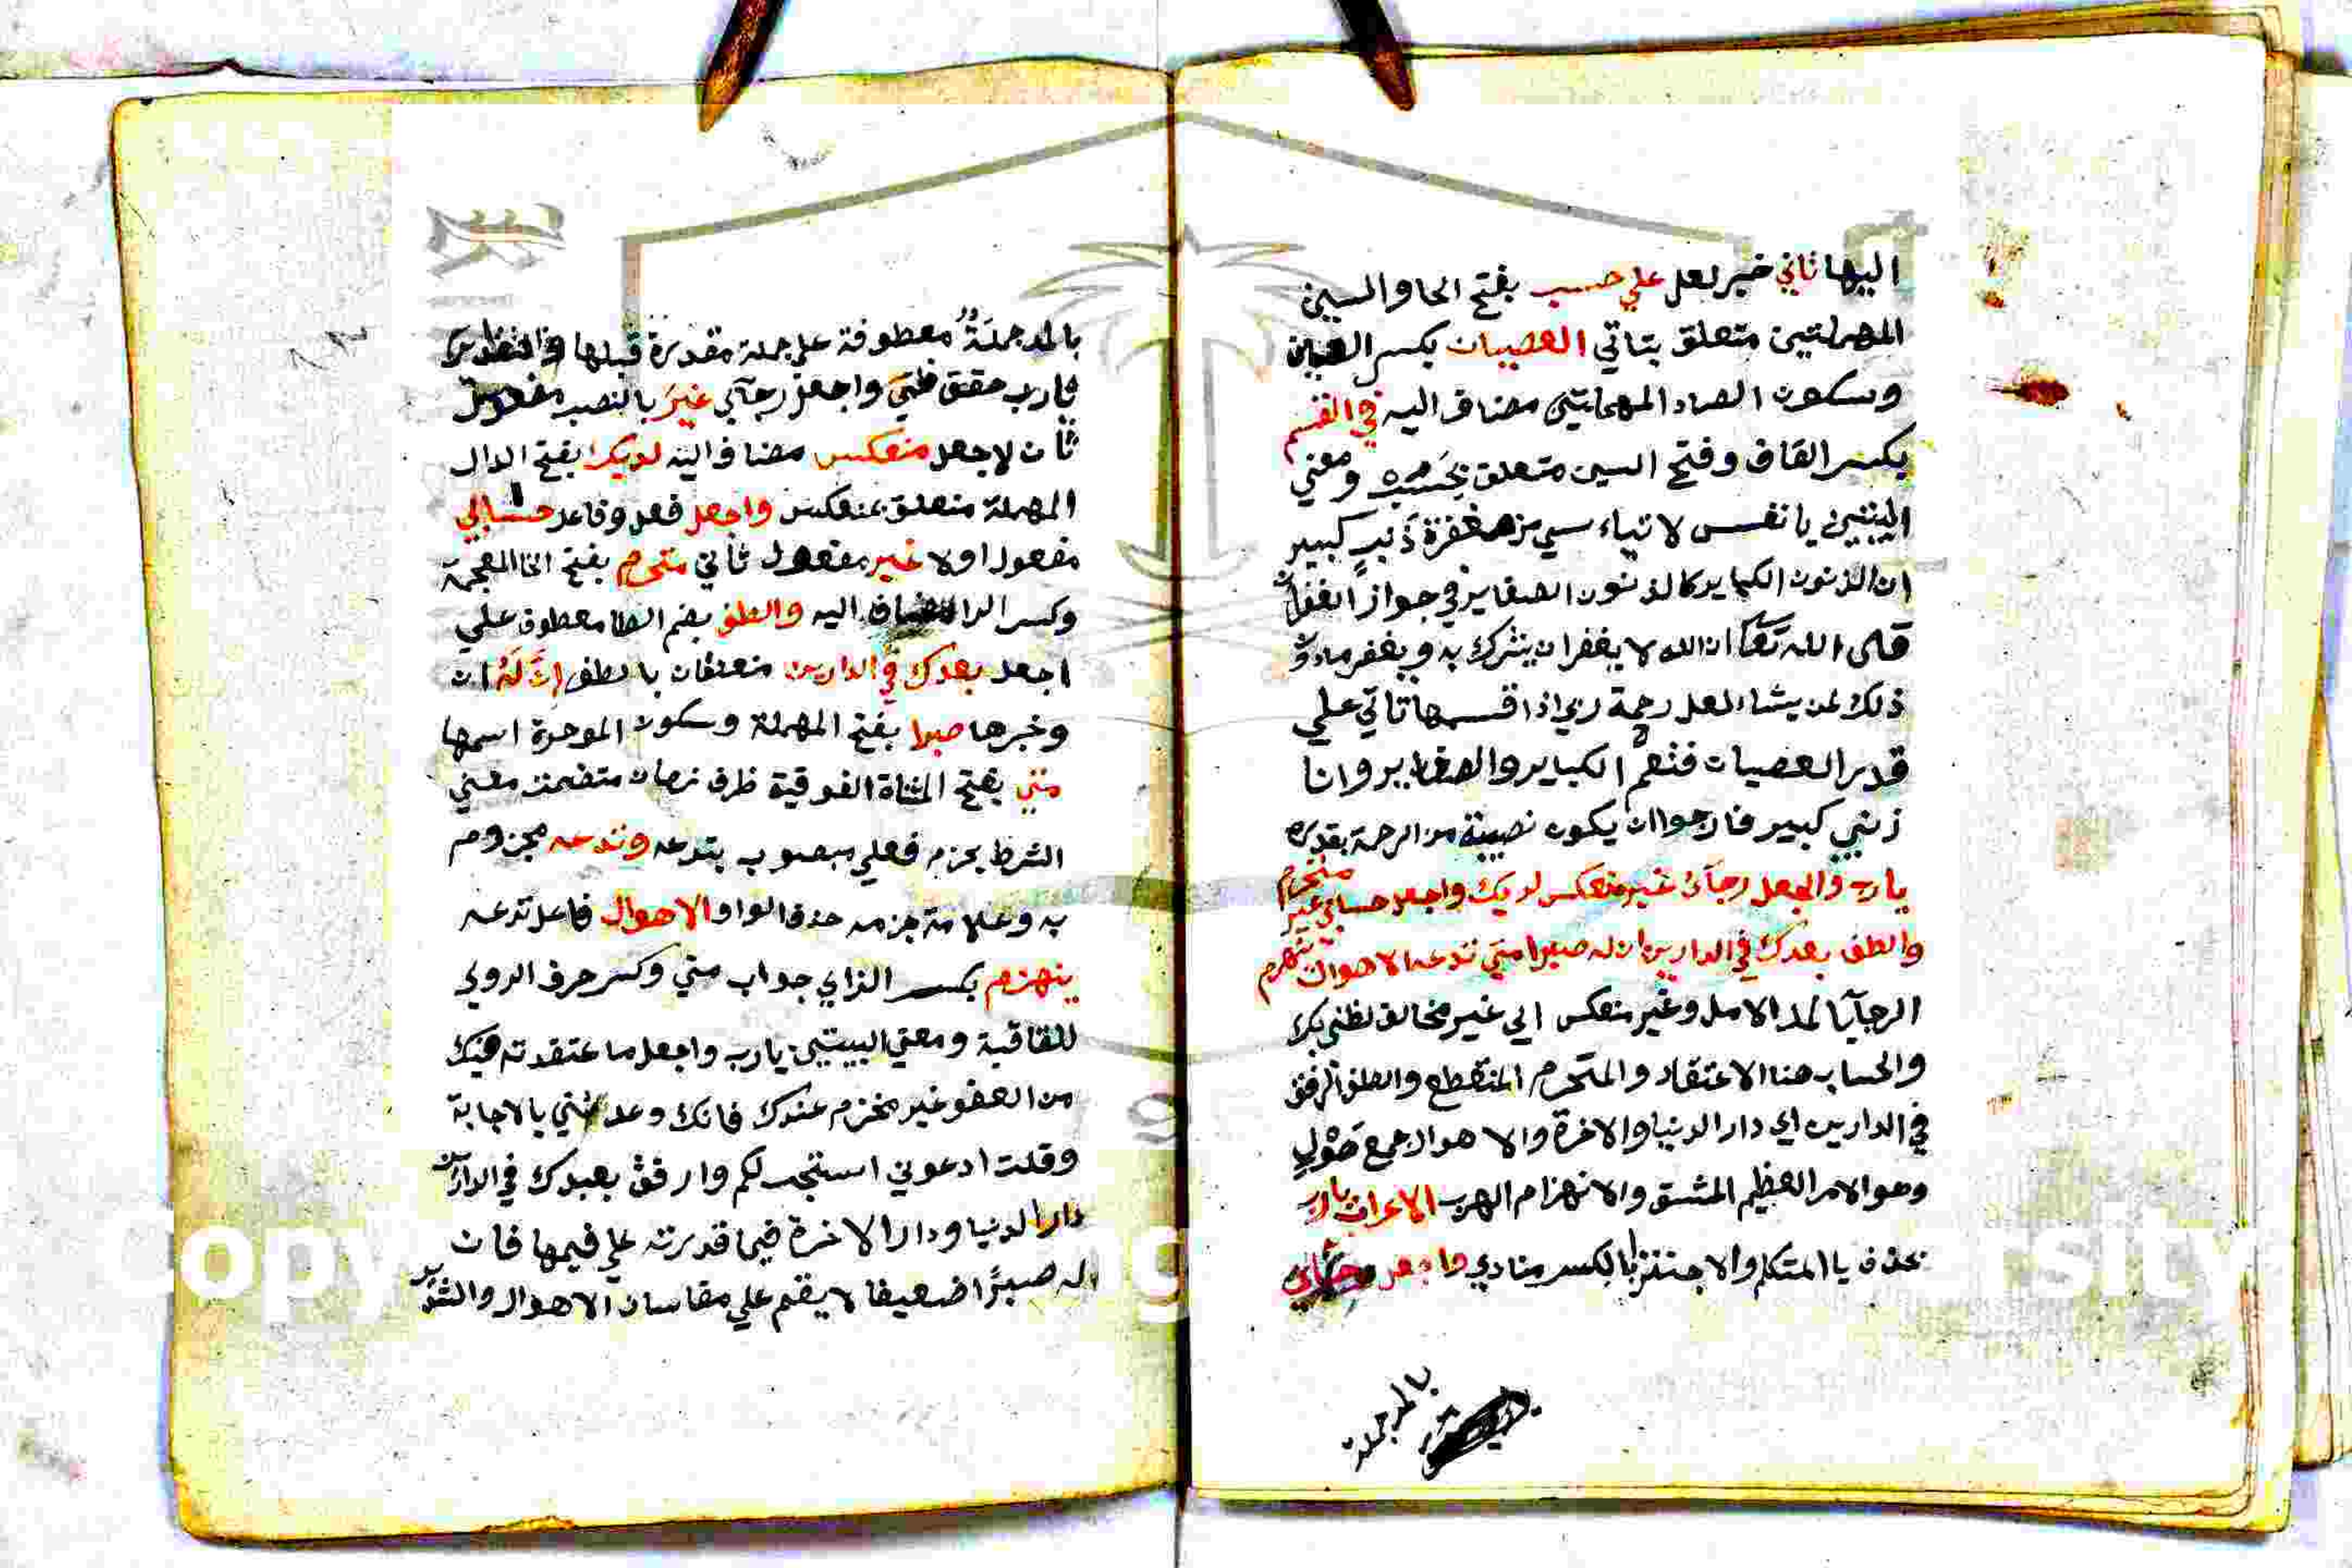 اليها تاتي خبر لعل علي حسب بفتح الحا والسين
المهملتين متعلق بتاتي العصيان بكسر العين
وسكون الصاد المهملتين مضاف اليه في القسم
بكسر القاف وفتح السين متعلق بحسب ومعني
البيتين يا نفس لا تياءسي من مغفرة ذنب كبير
ان الذنوب الكباير كالذنوب الصغاير في جواز الغفران
قال الله تعا ان الله لا يغفر ان يشرك به ويغفر ما دون
ذلك لمن يشا لعل رحمة ربي اذا قسمها تاتي علي
قدر العصيان فتعم الكباير والصغاير وانا
ذنبي كبير فارجوا ان يكون نصيبه من الرحمة بقدره
يا رب واجعل رجآئ غير منعكس لديك واجعل حسابي غير منخرم
والطف بعبدك في الدارين ان له صبرا متي تدعه الاهوال ينهزم
الرجآ بالمد الامل وغير منعكس اي غير مخالف لظني بك
والحساب هنا الاعتقاد والمنخرم المنقطع والطف ارفق
في الدارين اي دار الدنيا والاخرة والاهوال جمع هول
وهو الامر العظيم المشق والانهزام الهرب الاعراب يا رب
بحذف يا المتكلم والاجتزا بالكسر منادي واجعل رجائي
بالمد جملة
بالمد جملة معطوفة علي جملة مقدرة قبلها والتقدير
يا رب حقق ظني واجعل رجآي غير بالنصب مفعول
ثان لاجعل منعكس مضاف اليه لديك بفتح الدال
المهملة متعلق بمنعكس واجعل فعل وفاعل حسابي
مفعول اولا غير مفعول ثاني منخرم بفتح الخا المعجمة
وكسر الرا مضاف اليه والطف بضم الطا معطوف علي
اجعل بعبدك في الدارين متعلقان بالطف ان له ان
وخبرها صبرا بفتح المهملة وسكون الموحدة اسمها
متي بفتح المثناة الفوقية ظرف زمان متضمن معني
الشرط يجزم فعلي منصوب بتدعه وتدعه مجزوم
به وعلامة جزمه حذف الواو الاهوال فاعل تدعه
ينهزم بكسر الزاي جواب متي وكسر حرف الروي
للقافية ومعني البيتين يا رب واجعل ما عتقدته فيك
من العفو غير منخرم عندك فانك وعدتني بالاجابة
وقلت ادعوني استجب لكم وارفق بعبدك في الدارين
دار الدنيا ودار الاخرة فيما قدرته علي فيها فان
له صبرًا ضعيفا لا يقم علي مقاسات الاهوال والشدايد